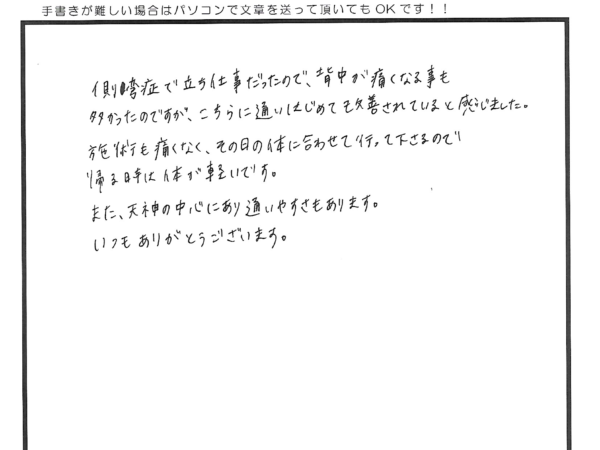 手書きが難しい場合はパソコンで文章を送って頂いてもOKです！！
側弯症で立ち仕事だったので、背中が痛くなる事も
多かったのですが、こちらに通いはじめて改善されていると感じました。
施術も痛くなく、その日の体に合わせて行って下さるので
帰る時は体が軽いです。
また、天神の中心にあり通いやすさもあります。
いつもありがとうございます。